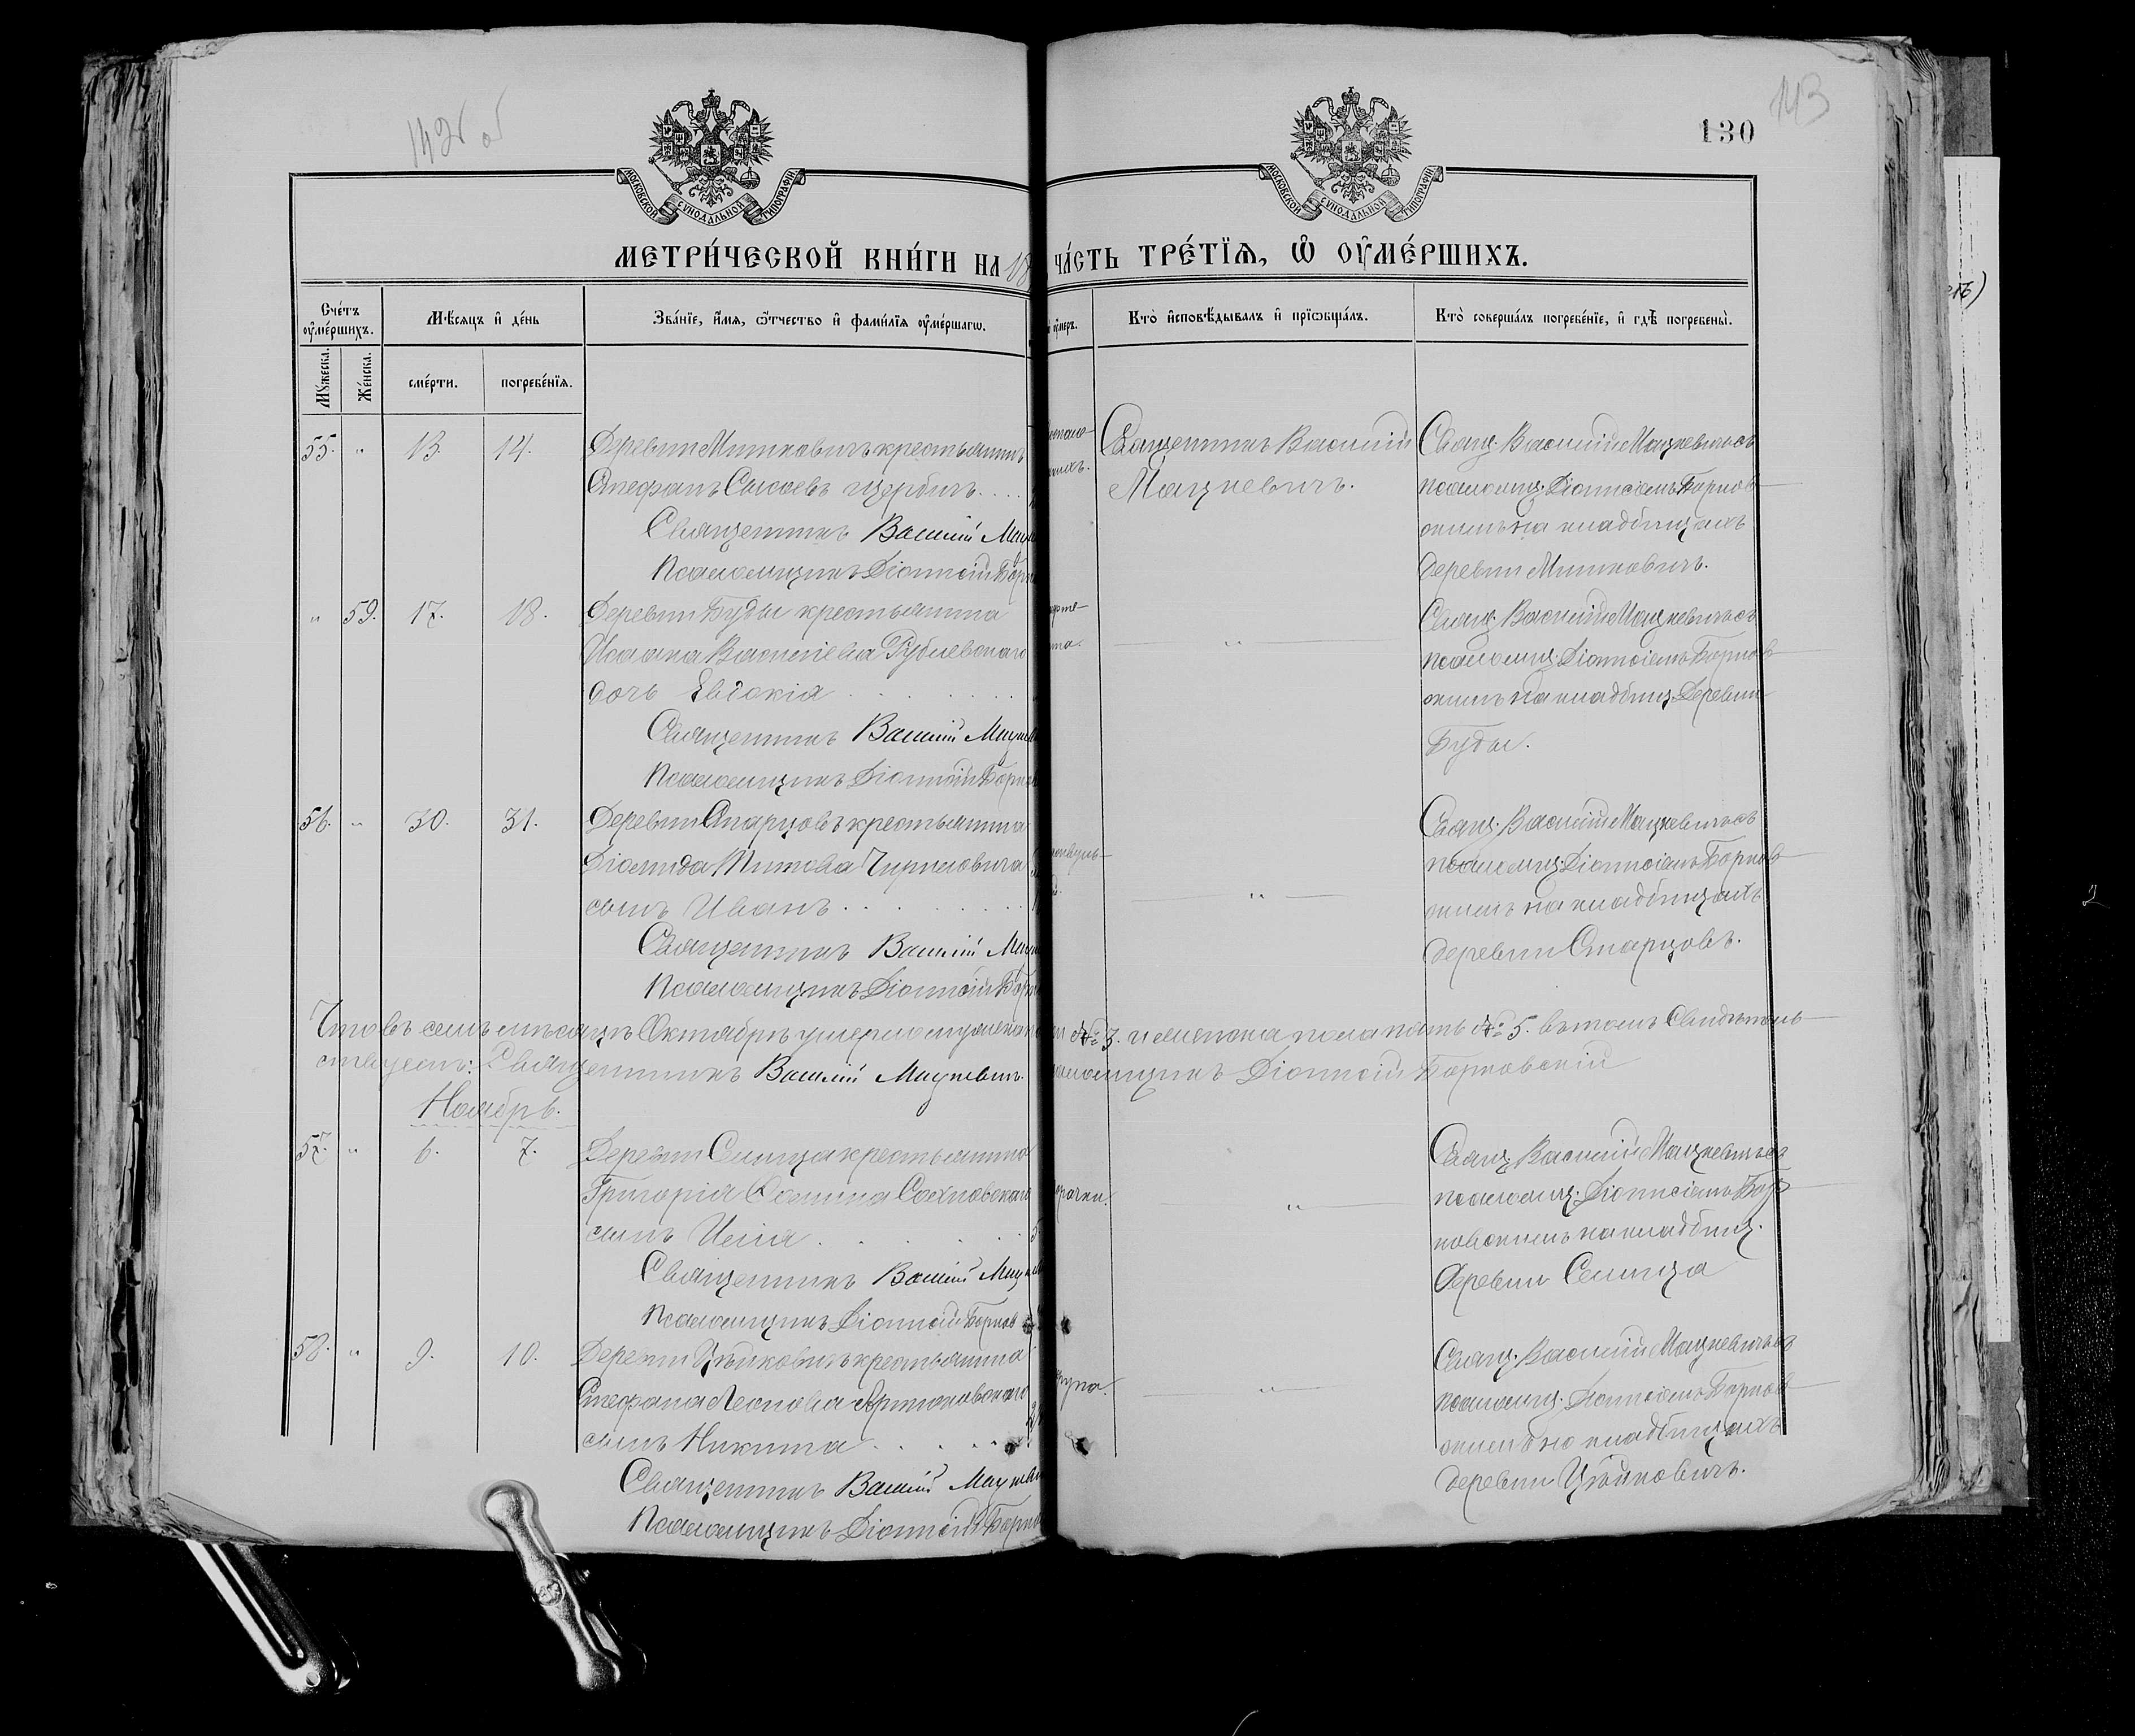 142 об
143
130
МОСКОВСКОЙ СѴНОДАЛЬНОЙ ТИПОГРАФІИ
МОСКОВСКОЙ СѴНОДАЛЬНОЙ ТИПОГРАФІИ
МЕТРИ́ЧЕСКОЙ КНИ́ГИ НА 18
ЧА́СТЬ ТРЕ́ТІѦ, Ѡ҆ ОУ҆МЕ́РШИХЪ.
Сче́тъ оу҆ме́ршихъ.
Мѣ́сѧцъ и҆ де́нь
Зва́нїе, и҆́мѧ, ѻ҆́тчество и҆ фами́лїѧ оу҆ме́ршагѡ.
оу҆меръ.
Кто̀ и҆сповѣ́дывалъ и҆ прїѡбща́лъ.
Кто̀ соверша́лъ погребе́нїе, и҆ гдѣ̀ погребены̀.
Мꙋ́жеска.
Же́нска.
сме́рти.
погребе́нїѧ.
55. " 13. 14. Деревни Мшиковичъ крестьянинъ
Стефанъ Сысоевъ Щербичъ....
Священникъ Василій
Псаломщикъ Діонисій
Священникъ Василій
Мацкевичъ.
Свящ. Василій Мацкевичъ съ
псаломщ. Діонисіемъ Борков-
скимъ на кладбищахъ
деревни Мшиковичъ.
" 59. 17. 18. Деревни Буды крестьянина
Исаака Василіева Рублевскаго
дочь Евдокія
Священникъ Василій
Псаломщикъ Діонисій
"
Свящ. Василій Мацкевичъ съ
псаломщ. Діонисіемъ Борков-
скимъ на кладбищ. деревни
Буды.
56. " 30. 31. Деревни Старцовъ крестьянина
Діомида Титова
сынъ Иванъ
Священникъ Василій
Псаломщикъ Діонисій
"
Свящ. Василій Мацкевичъ съ
псаломщ. Діонисіемъ Борков-
скимъ на кладбищахъ
деревни Старцовъ.
Что въ семъ мѣсяцѣ Октябрѣ умерло мужеска № 3. и женска пола пять № 5. въ томъ свидѣтель-
ствуемъ: Священникъ Василій Мацкевичъ. Діонисій Борковскій
Ноябрь.
57. " 6. 7. Деревни Селища крестьянина
Григорія
сынъ Илія
Священникъ Василій
Псаломщикъ Діонисій
"
Свящ. Василій Мацкевичъ съ
псаломщ. Діонисіемъ Бор-
ковскимъ на кладбищ.
деревни Селища
58. " 9. 10. Деревни Цѣйковичъ крестьянина
Стефана Леонова
сынъ Никита
Священникъ Василій
Псаломщикъ Діонисій
"
Свящ. Василій Мацкевичъ съ
псаломщ. Діонисіемъ Борков-
скимъ на кладбищахъ
деревни Цѣйковичъ.